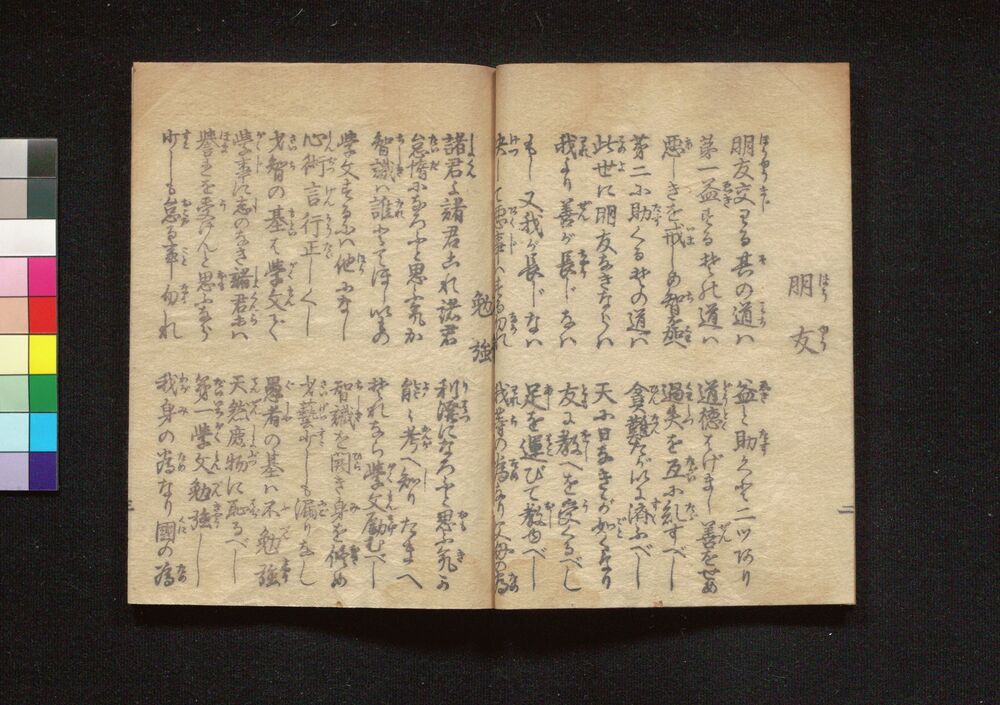 朋友
朋友交りる其の道ハ
益と助くると二ツあり
第一益するその道ハ
道徳はげまし善をせめ
悪しきを戒しめ智を益へ
過失を互に糺すべし
第二に助くるその道ハ
貧難たがいに済ふべし
此世に朋友なきならハ
天に日なきが如くなり
我より善が長じなハ
友に教へを受くるべし
もし又我が長じなハ
足を運びて教ゆべし
決して悪事ハする勿れ
我等の為なり父母の為
勉強
諸君よ諸君これ諸君
利溌になろふと思ふ気か
怠惰になろふと思ふ気か
能く考へ知りたまへ
智識ハ誰とてほしいもの
それなら学文勧むべし
学文するハ他になし
智識を開き身を修め
心術言行正しくし
才藝少しも漏りなし
才智の基は学文ぞ
愚者の基ハ不勉強
学事に志のなき諸君らハ
天然産物に恥るべし
誉を受けんと思ふなら
第一学文勉強し
少しも怠る事勿れ
我身の為なり國の為
二
三